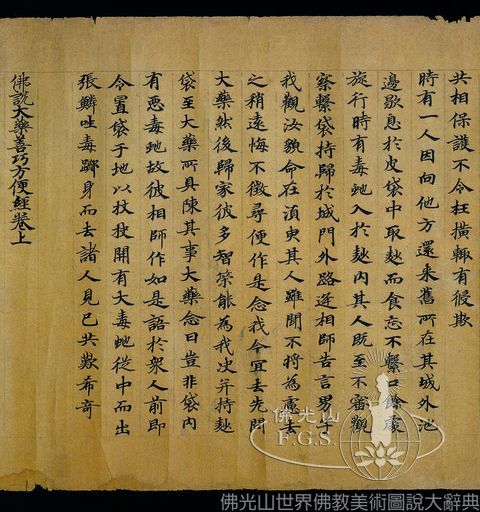 共相保護不令枉橫輙有侵欺
時有一人因向他方還來舊所在其城外池
邊歇息於皮袋中取麨而食忘不繫口餘處
旋行時有毒虵入於麨內其人旣至不審觀
察繫袋持歸於城門外路逢相師告言男子
我觀汝貌命在湏臾其人雖聞不將為慮去
之稍遠悔不徵尋便作是念我今宜去先問
大藥然後歸家彼多智策能為我決幷持麨
袋至大藥所具陳其事大藥念曰豈非袋內
有惡毒虵故彼相師作如是語於衆人前即
令置袋于地以杖撥開有大毒虵從中而出
張鱗吐毒躃身而去諸人見已共歎希奇
佛說大藥善巧方便經卷上
佛光山
F.G.S.
佛光山世界佛教美術圖說大辭典